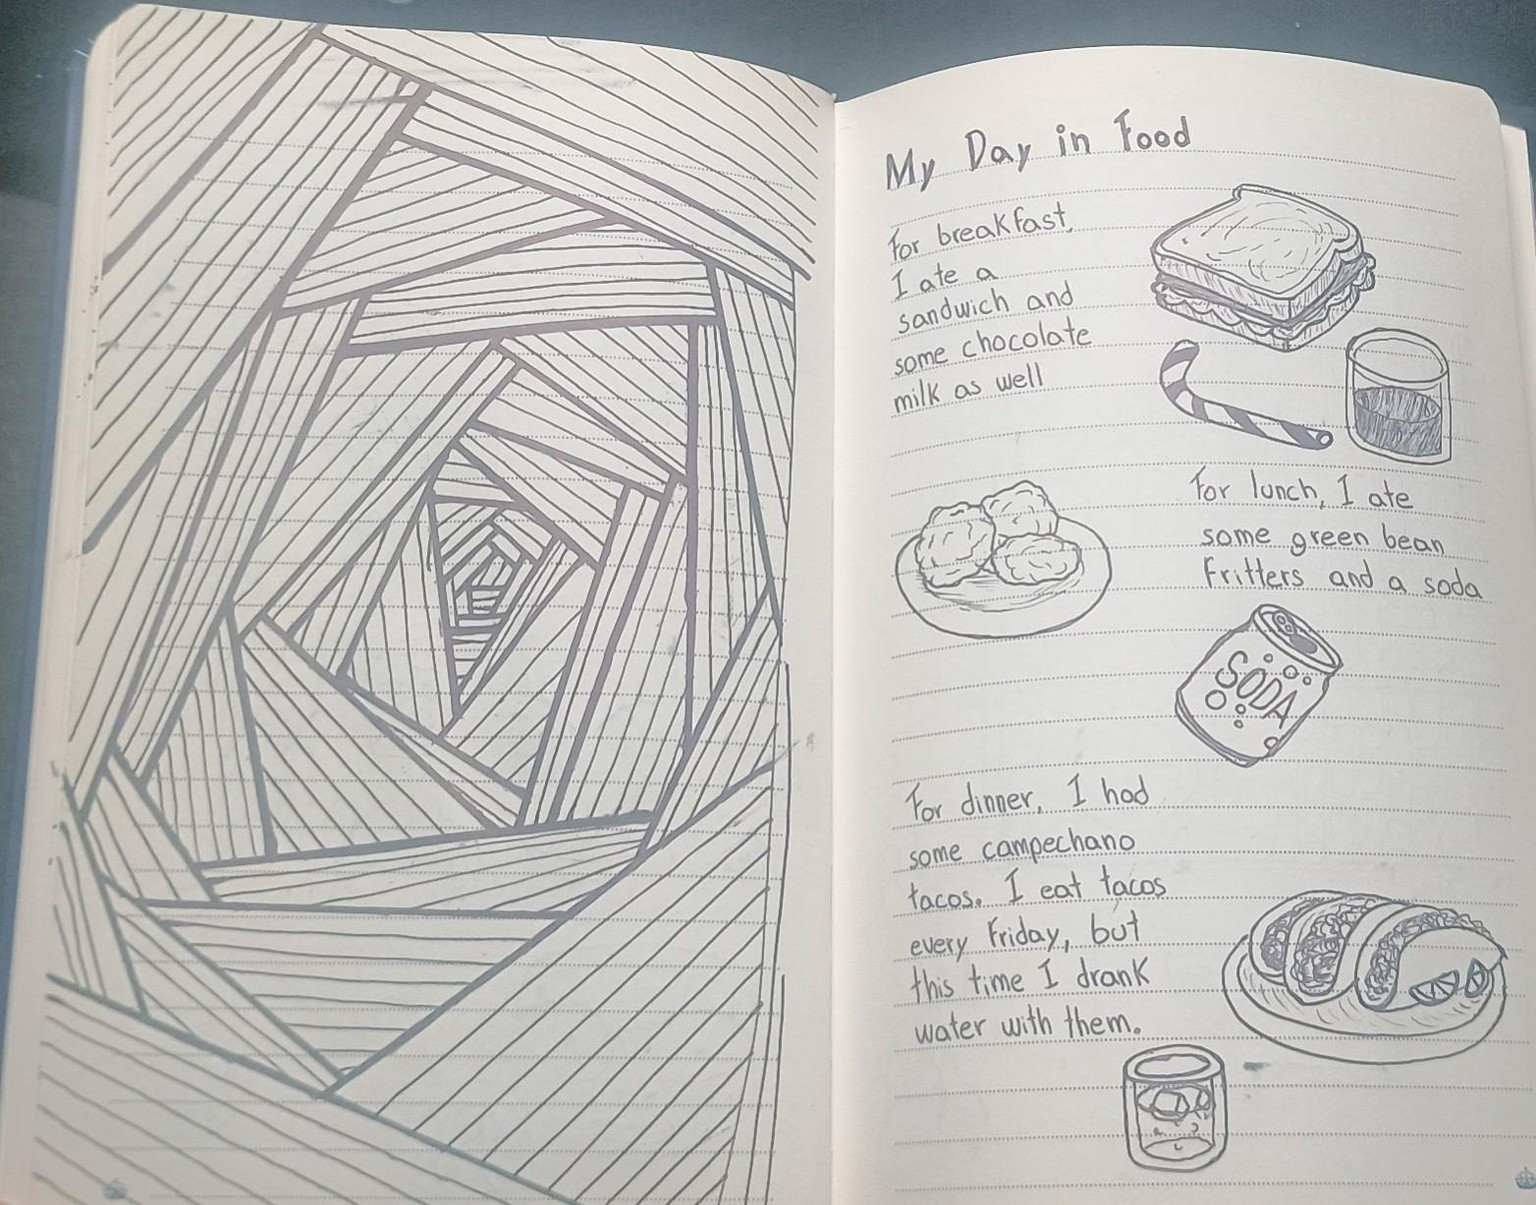 My Day in Food
For breakfast,
I ate a
sandwich and
some chocolate
milk as well
For lunch, I ate
some green bean
fritters and a soda
SODA
For dinner, I had
some campechano
tacos. I eat tacos
every Friday, but
this time I drank
water with them.